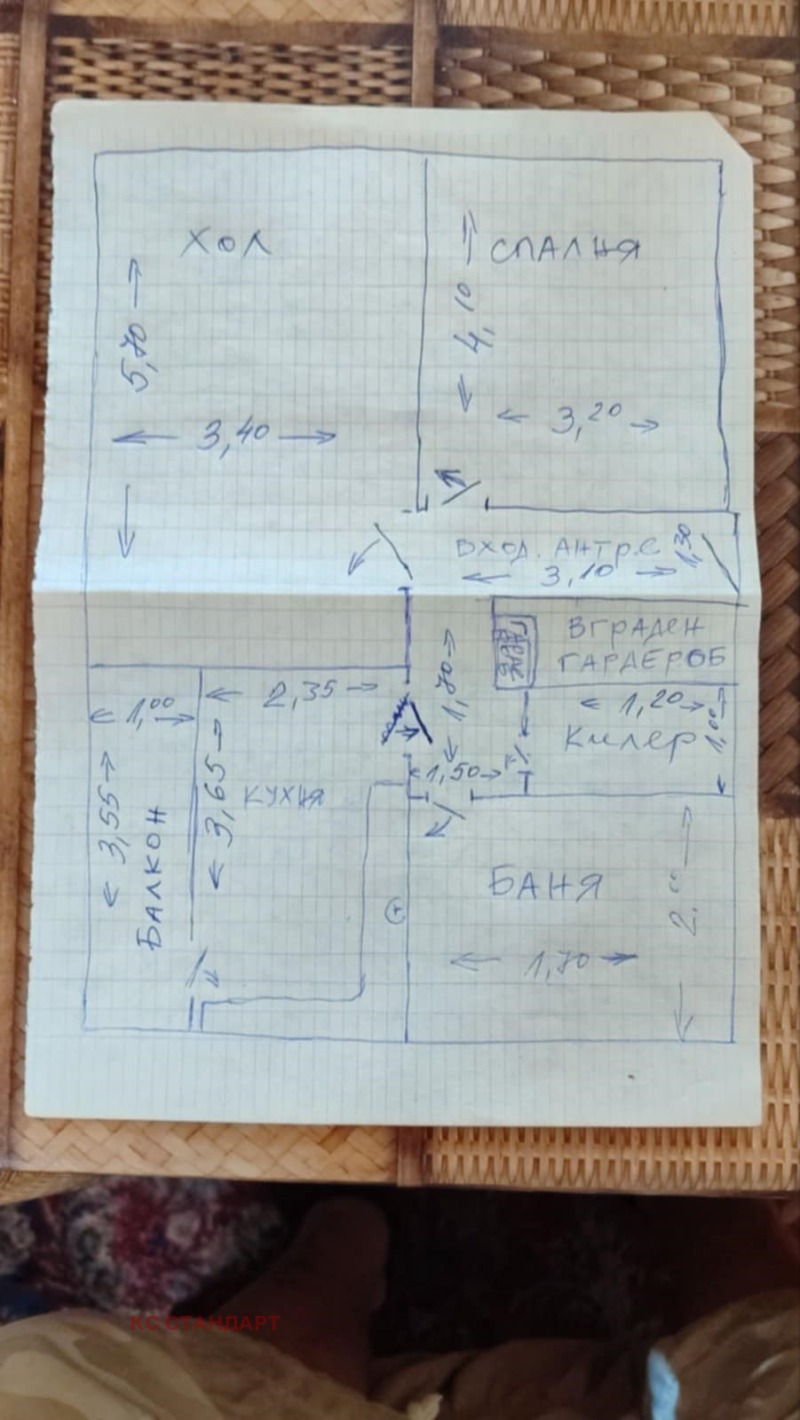 ХОЛ
СПАЛНЯ
5,70
4,10
3,40
3,20
ВХОД. АНТРЕ
1,30
3,10
ВГРАДЕН
ГАРДЕРОБ
1,70
1,00
2,35
1,20
1,00
Килер
3,55
3,65
КУХНЯ
1,50
БАЛКОН
БАНЯ
2,00
1,70
КС СТАНДАРТ